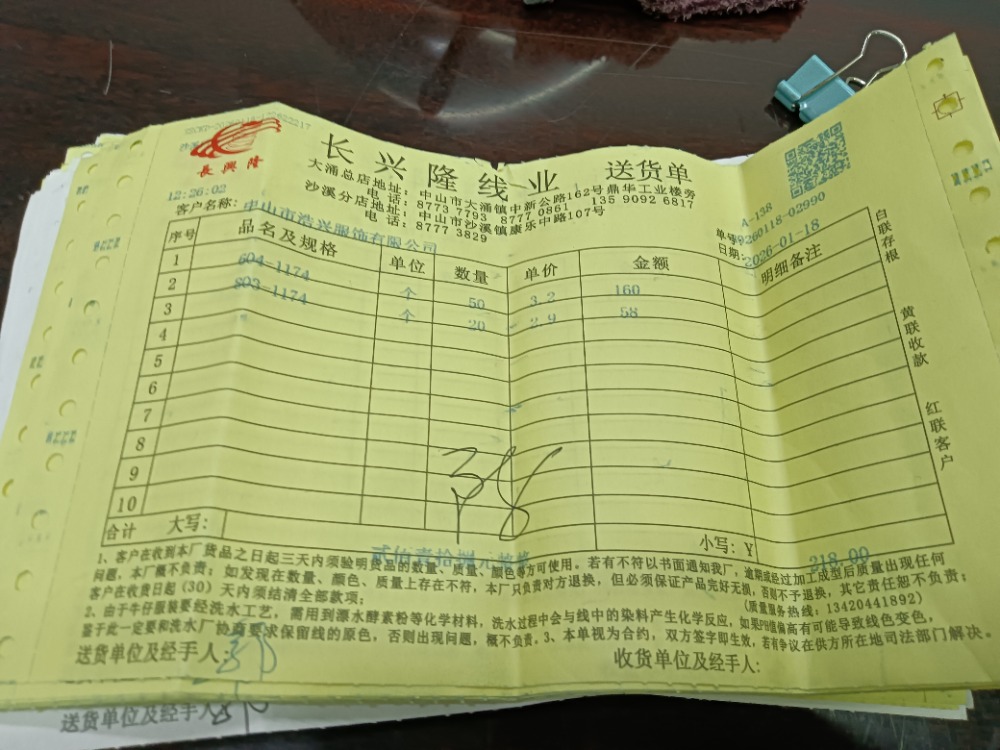 長興隆
长兴隆线业 送货单
大涌总店地址：中山市大涌镇中新公路162号鼎华工业楼旁
电 话：8773 7793 8777 0861 135 9092 6817
沙溪分店地址：中山市沙溪镇康乐中路107号
电 话：8777 3829
12:26:02
客户名称：中山市浩兴服饰有限公司
A-138
单号
日期：2026-01-18
序号 品名及规格 单位 数量 单价 金额 明细备注
1 604-1174 个 50 3.2 160
2 803-1174 个 20 2.9 58
3
4
5
6
7
8
9
10
合计 大写： 贰佰壹拾捌元 小写：￥ 218.00
白联存根 黄联收款 红联客户
1、客户在收到本厂货品之日起三天内须验明货品的数量、质量、颜色等方可使用。若有不符以书面通知我厂，逾期或经过加工成型后质量出现任何
问题，本厂概不负责；如发现在数量、颜色、质量上存在不符，本厂只负责对方退换，但必须保证产品完好无损，否则不予退换，其它责任恕不负责；
客户在收货日起（30）天内须结清全部款项； （质量服务热线：13420441892）
2、由于牛仔服装要经洗水工艺，需用到漂水酵素粉等化学材料，洗水过程中会与线中的染料产生化学反应，如果PH值偏高有可能导致线色变色，
鉴于此一定要和洗水厂协商要求保留线的原色，否则出现问题，概不负责。3、本单视为合约，双方签字即生效，若有争议在供方所在地司法部门解决。
送货单位及经手人： 收货单位及经手人：
送货单位及经手人